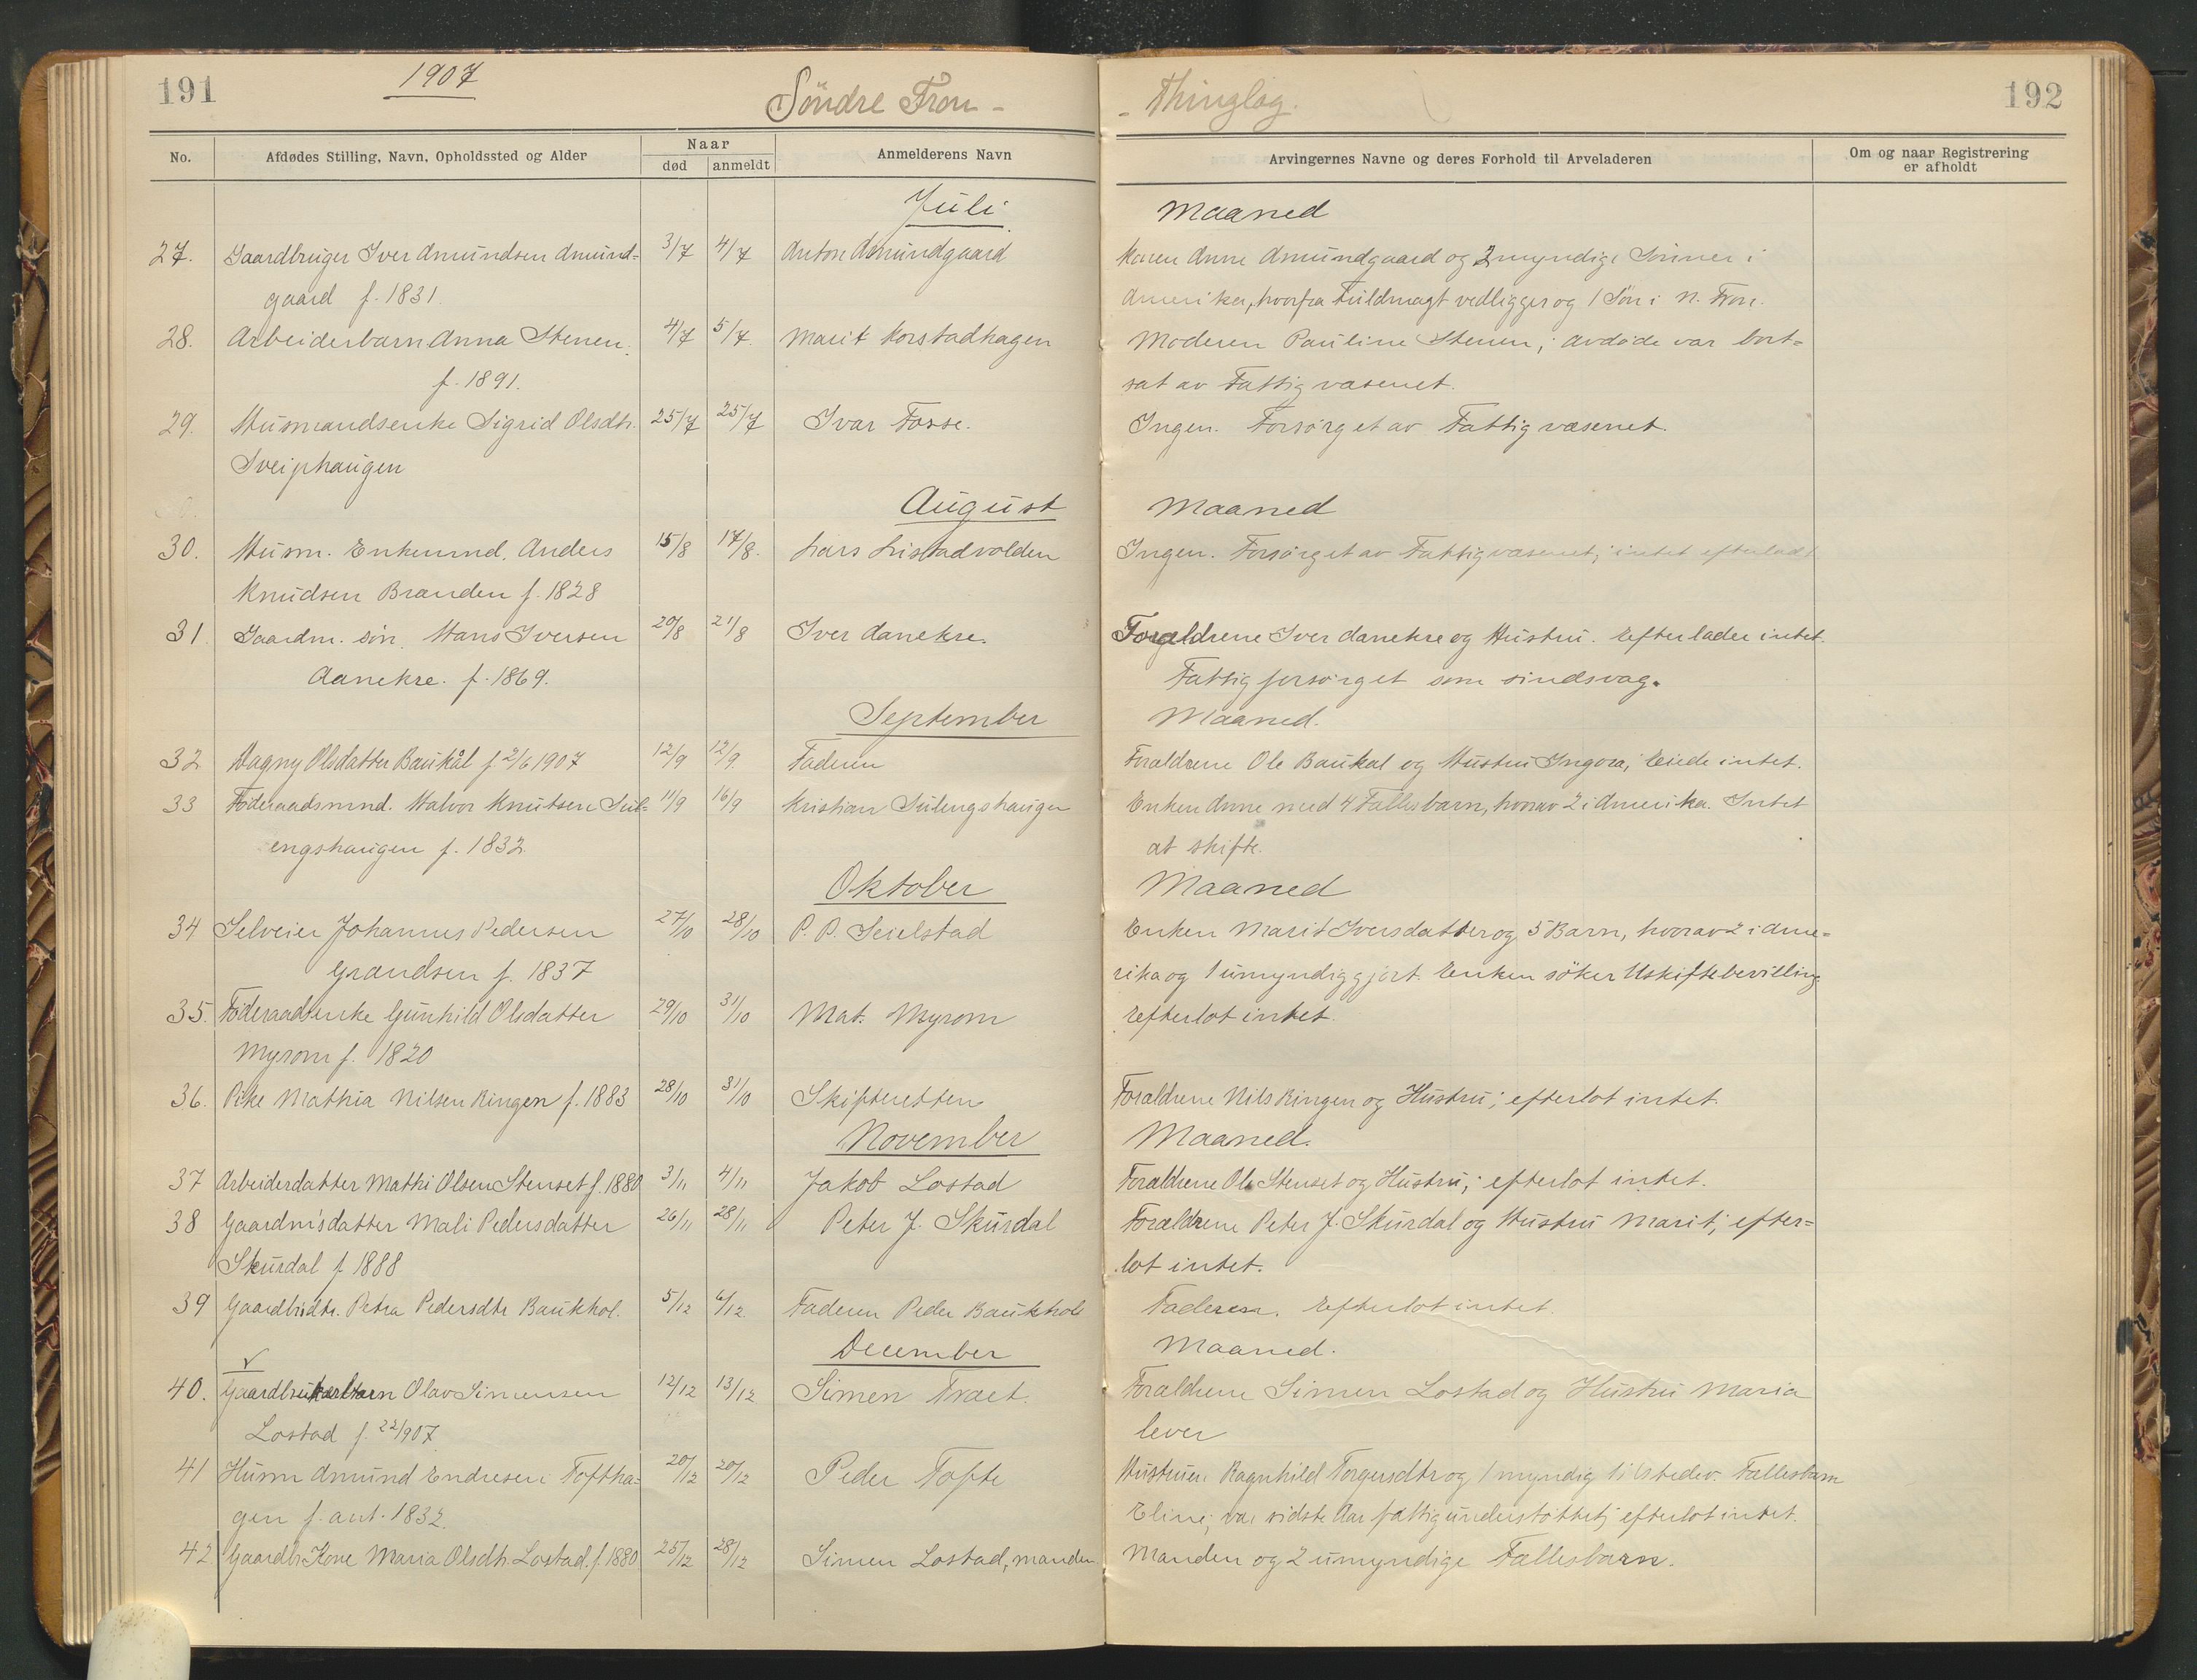 191 1907 Söndre Fron - - Thinglag. 192
No. Afdødes Stilling, Navn, Opholdssted og Alder Naar død anmeldt Anmelderens Navn Arvingernes Navne og deres Forhold til Arveladeren Om og naar Registrering er afholdt
Juli Maaned
27. Gaardbruger Iver Amundsen Amund= 3/7 4/7 Anton Amundgaard Konen Anne Amundgaard og 2 myndige Sönner i
gaard f. 1831. Amerika, hvorfra Fuldmagt vedligger og 1 Sön i N. Fron.
28. Arbeiderbarn Anna Stenen. 4/7 5/7. Marit Korstadhagen Moderen Pauline Stenen; avdöde var bort=
f. 1891. sat av Fattigvæsenet.
29. Husmandsenke Sigrid Olsdtr. 25/7 25/7 Ivar Fosse. Ingen. Forsörget av Fattigvæsenet.
Sveiphaugen
August Maaned
30. Husm. Enkemnd. Anders 15/8 17/8. Lars Listadvolden Ingen. Forsörget av Fattigvæsenet; intet efterladt
Knudsen Branden f. 1828
31. Gaardm. sön. Hans Iversen 20/8 21/8 Iver Aanekre. Forældrene Iver Aanekre og Hustru. Efterlader intet.
Aanekre. f. 1869. Fattigforsörget som sindsvag.
September Maaned.
32 Dagny Olsdatter Baukål f. 2/6 1907 12/9 12/9. Faderen Forældrene Ole Baukal og Hustru Ingora; Eiede intet.
33 Föderaadsmnd. Halvor Knutsen Sul= 11/9 16/9 Kristian Sulengshaugen Enken Anne med 4 Fællesbarn, hvorav 2 i Amerika. Intet
engshaugen f. 1832. at skifte.
Oktober Maaned
34 Selveier Johannes Pedersen 27/10 28/10 P. P. Seielstad Enken Marit Iversdatter og 5 Barn, hvorav 2 i Ame=
Grandsen f. 1837 rika og 1 umyndiggjort. Enken söker Uskiftebevilling.
35. Föderaadsenke Gunhild Olsdatter 29/10 31/10 Mat. Myrom Efterlot intet.
Myrom f. 1820
36. Pike Mathia Nilsen Ringen f. 1883 28/10 31/10 Skifteretten Forældrene Nils Ringen og Hustru; efterlot intet.
November Maaned.
37 Arbeiderdatter Mathi Olsen Stenset f. 1880 3/11 4/11 Jakob Lostad Forældrene Ole Stenset og Hustru; efterlot intet.
38 Gaardm's datter Mali Pedersdatter 26/11 28/11 Peter J. Skurdal Forældrene Peter J. Skurdal og Hustru Marit; efter=
Skurdal f 1888 lot intet.
39 Gaardbrdtr. Petra Pedersdtr Baukhol. 5/12 6/12. Faderen Peder Baukhol Faderen. Efterlot intet.
December Maaned.
40. Gaardbrukerbarn Olav Simensen 12/12 13/12 Simen Træet. Forældrene Simen Lostad og Hustru Maria
Lostad f. 22/907. lever
41 Husm Amund Endresen Toftha= 20/12 20/12 Peder Tofte Hustruen Ragnhild Torgersdtr og 1 myndig tilstedev. Fællesbarn
gen f. ant. 1832. Eline; var sidste Aar fattigunderstöttet; efterlot intet.
42 Gaardbr Kone Maria Olsdtr. Lostad, f. 1880 25/12 28/12 Simen Lostad, manden Manden og 2 umyndige Fællesbarn.